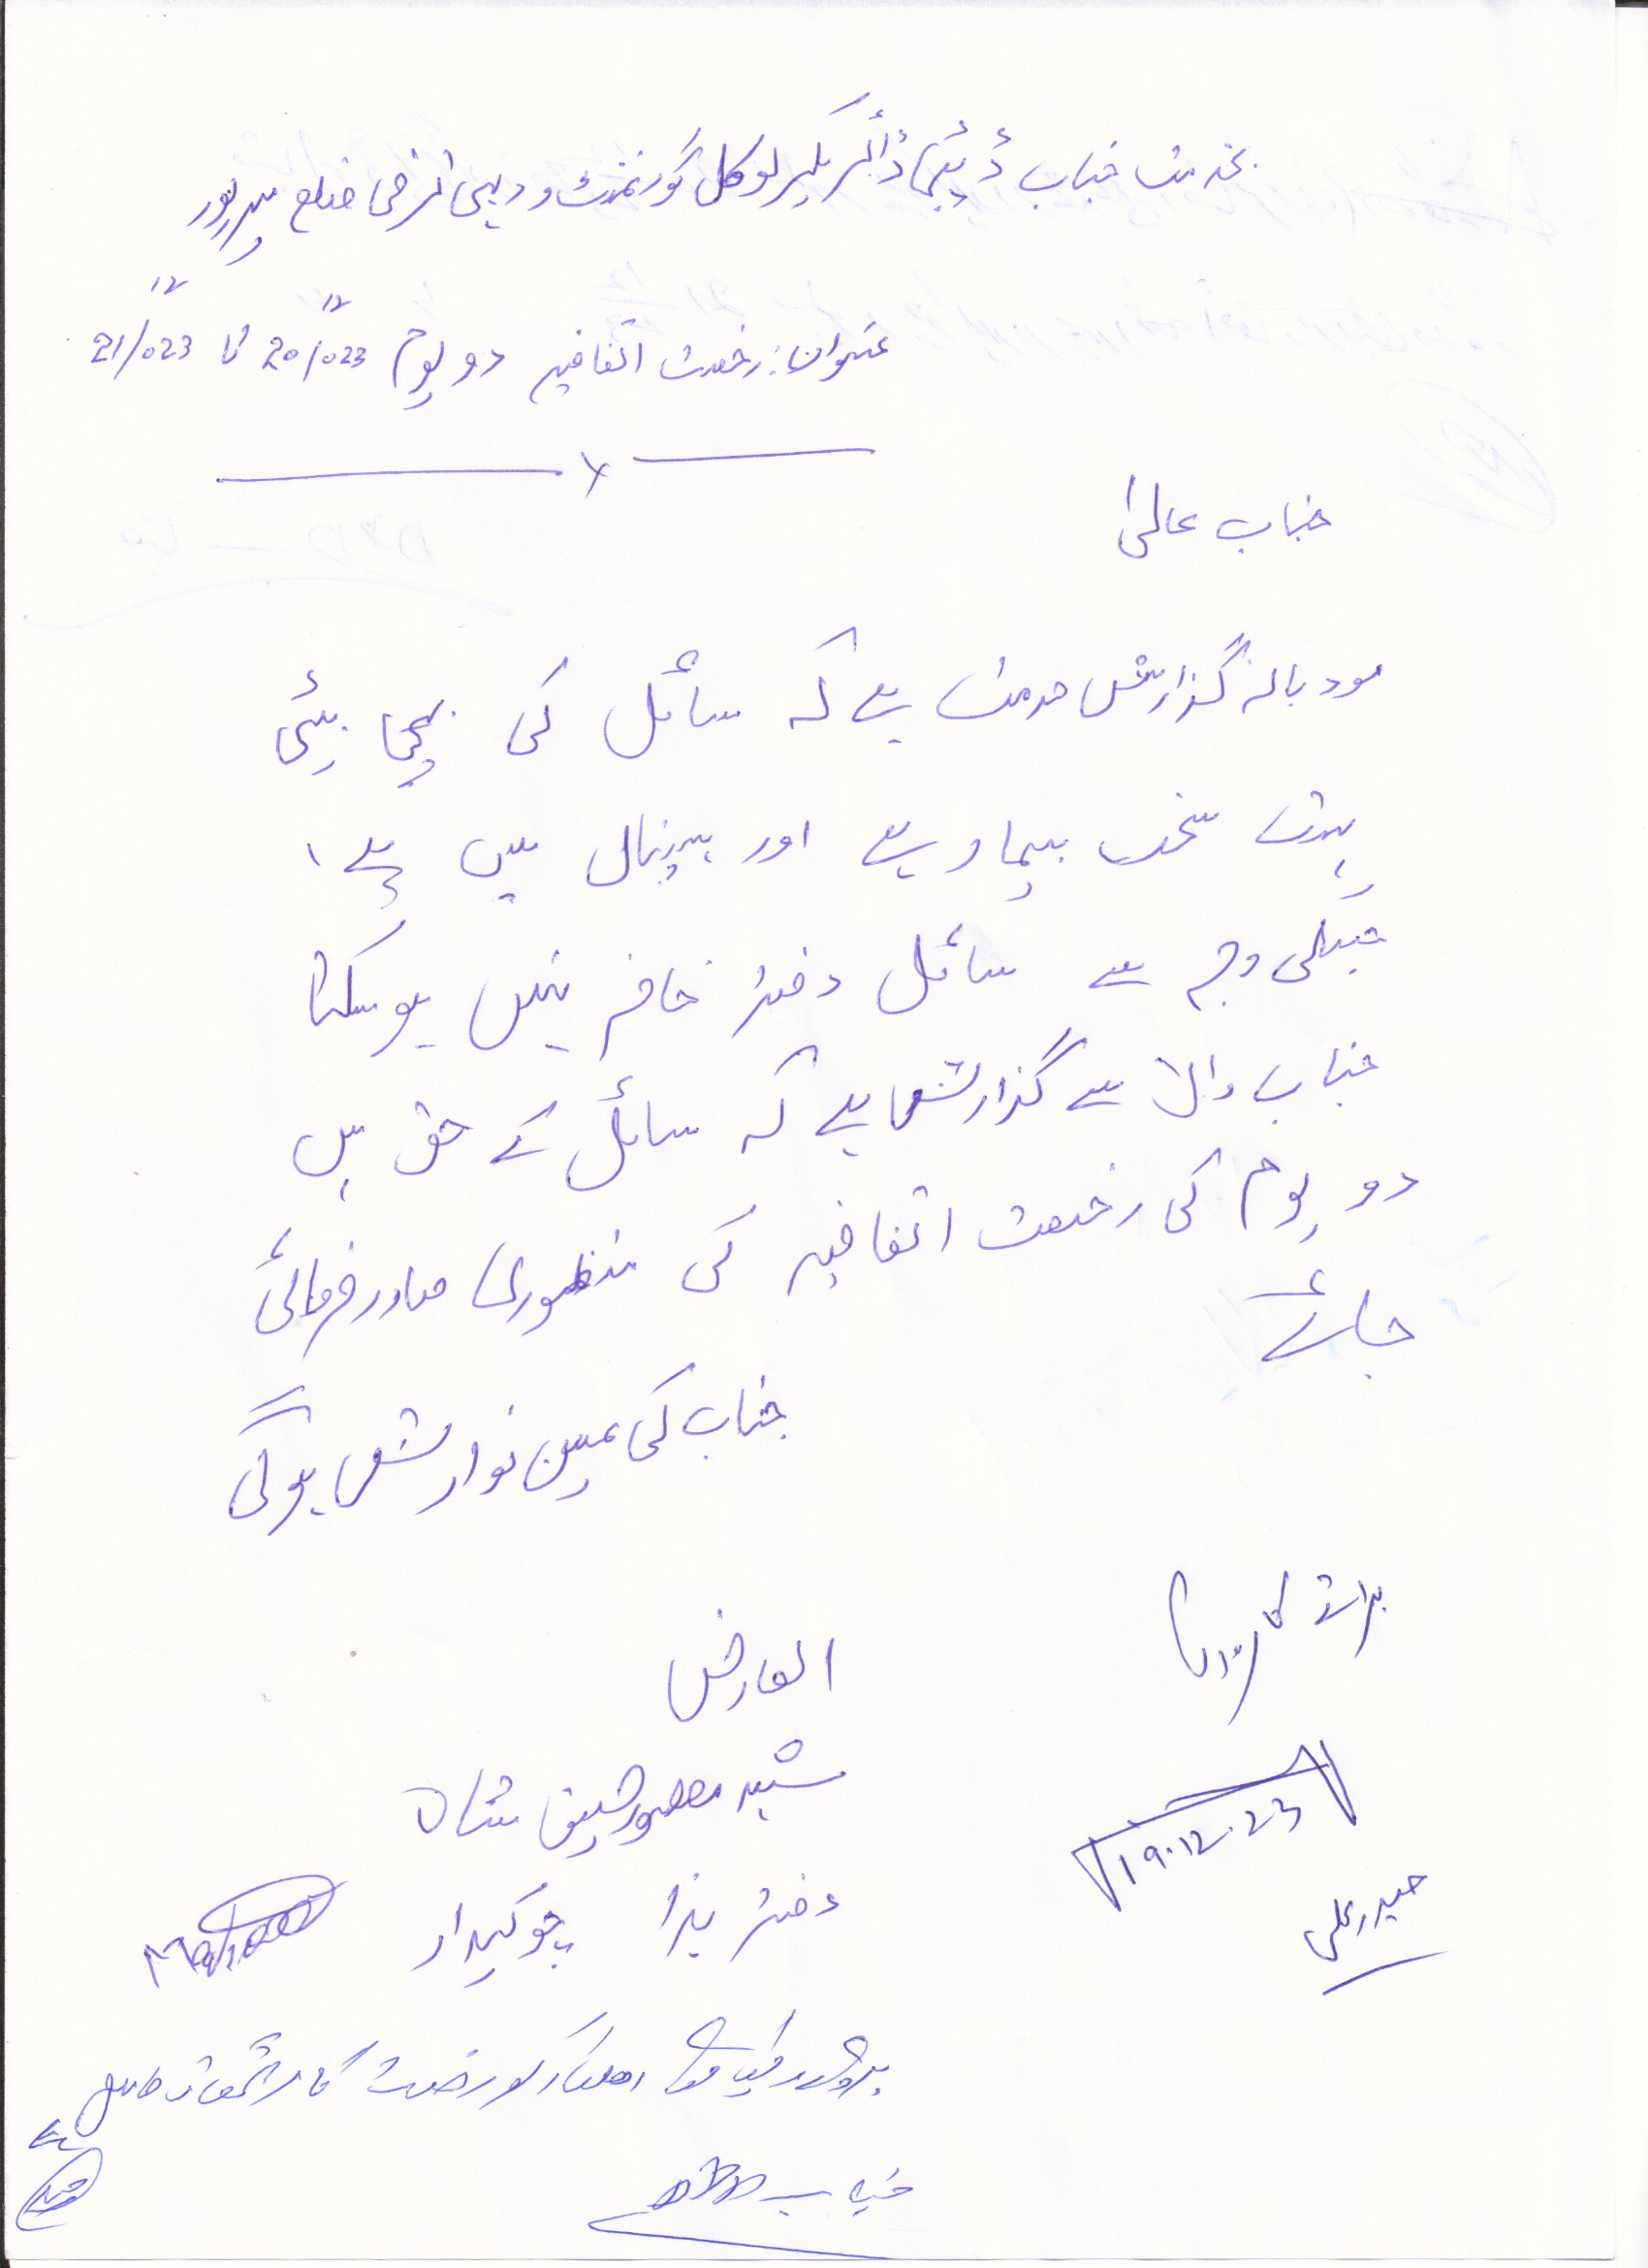 بخدمت جناب ڈپٹی ڈائریکٹر لوکل گورنمنٹ و دیہی ترقی ضلع میرپور
عنوان: رخصت اتفاقیہ دو یوم 20/12/023 تا 21/12/023
جناب عالی
مودبانہ گذارش خدمت ہے کہ سائل کی بچی بیٹی
بہت سخت بیمار ہے اور ہسپتال میں ہے۔
جسکی وجہ سے سائل دفتر حاضر نہیں ہو سکتا
جناب والا سے گذارش ہے کہ سائل کے حق میں
دو یوم کی رخصت اتفاقیہ کی منظوری صادر فرمائی
جائے
جناب کی عین نوازش ہوگی
برائے کاروائی
العارض
سید منصور حسین شاہ
19.12.23
دفتر ہذا چوکیدار
حیدر علی
اہلکار کو رخصت کا استحقاق حاصل
ہے
جناب